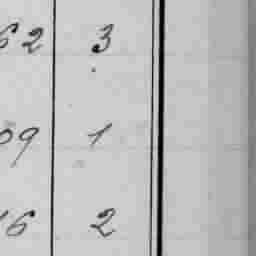 62 3
09 1
16 2